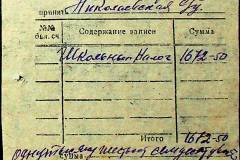 принят Николаевская с/у.
№№ бл. сч. Содержание записи Сумма
Школьный Налог 1672-50
Итого 1672-50
одну тысячу шестьсот семьдесят